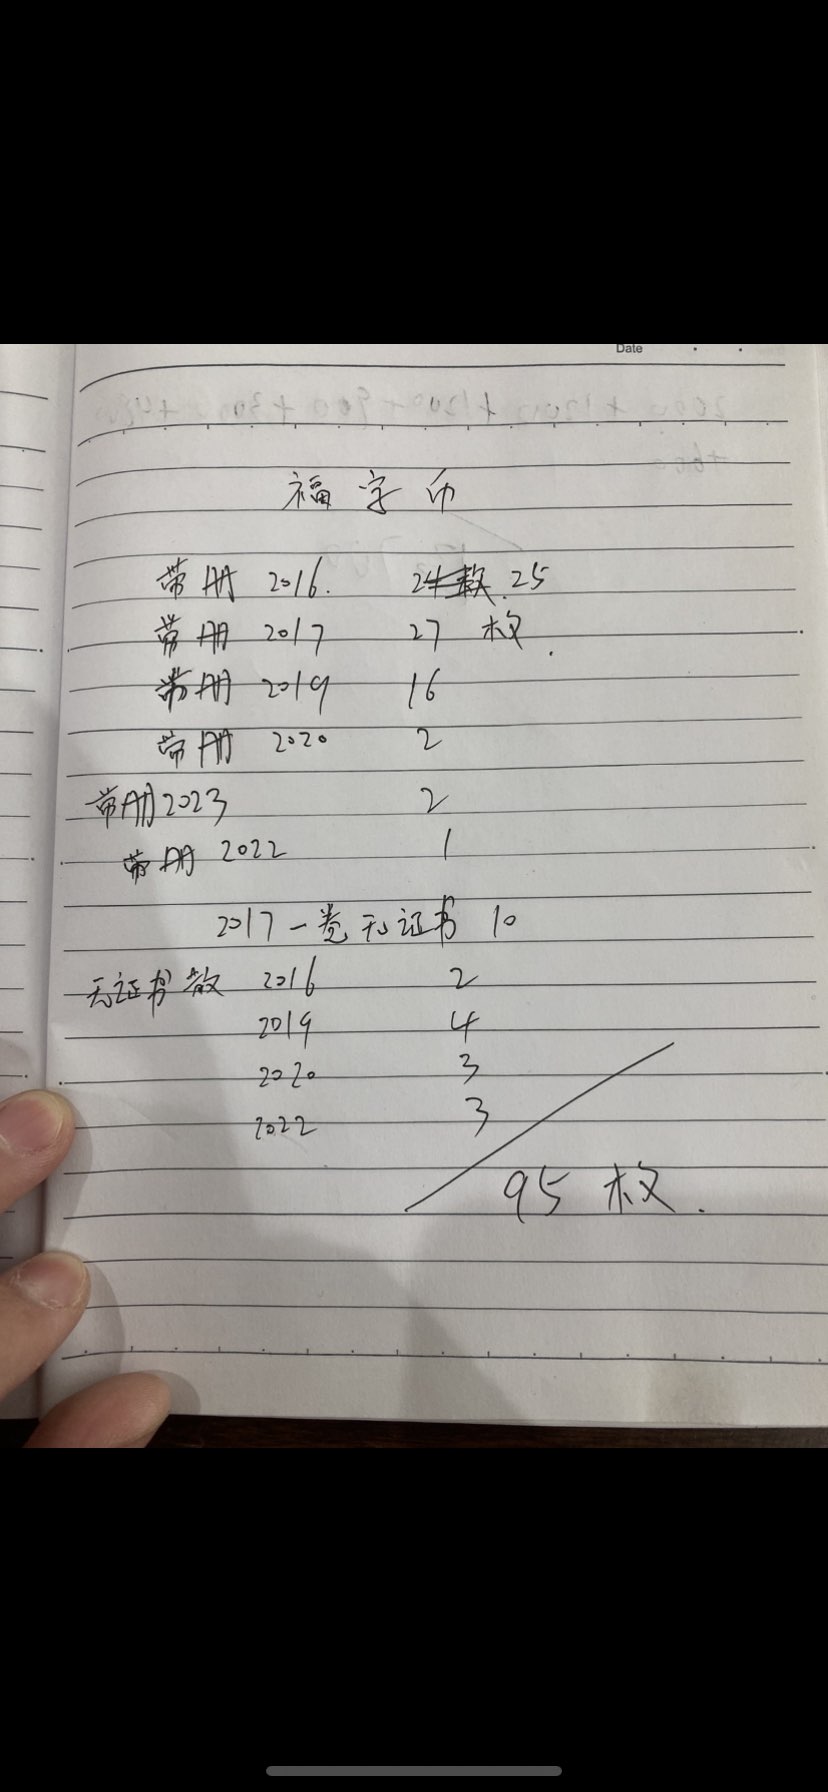 Date
福字币
带册 2016. 25
带册 2017 27 枚.
带册 2019 16
带册 2020 2
带册 2023 2
带册 2022 1
2017 一卷无证书 10
无证书散 2016 2
2019 4
2020 3
2022 3
95 枚.